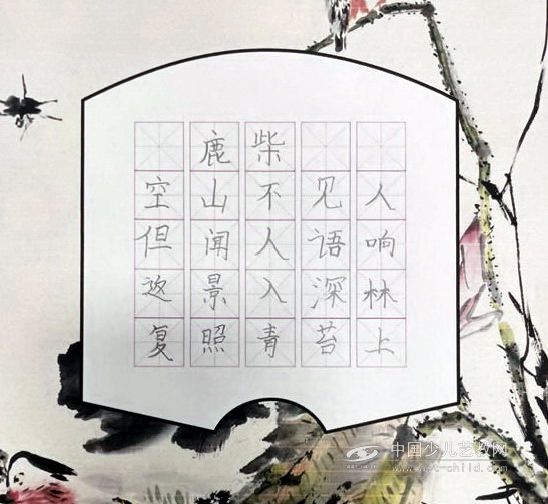 鹿柴
空山不见人
但闻人语响
返景入深林
复照青苔上
中国少儿艺教网